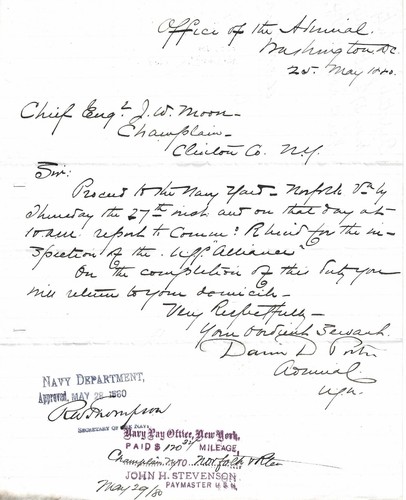 Office of the Admiral.
Washington, D.C.
25. May 1880.
Chief Engr J. W. Moon
Champlain
Clinton Co. N.Y.
Sir:
Proceed to the Navy Yard Norfolk Va by
Thursday the 27th inst and on that day at
10 a.m. report to Commo: for the in-
spection of the "Alliance"
On the completion of this duty you
will return to your domicile
Very Respectfully
Your obedient Servant.
David D Porter
Admiral
NAVY DEPARTMENT,
Approved, MAY 28 1880
RW Thompson
SECRETARY OF THE NAVY.
Navy Pay Office, New York,
PAID $ MILEAGE,
Champlain NY TO Norfolk & Rtn
JOHN H. STEVENSON
PAYMASTER U.S.N.
May 29/80